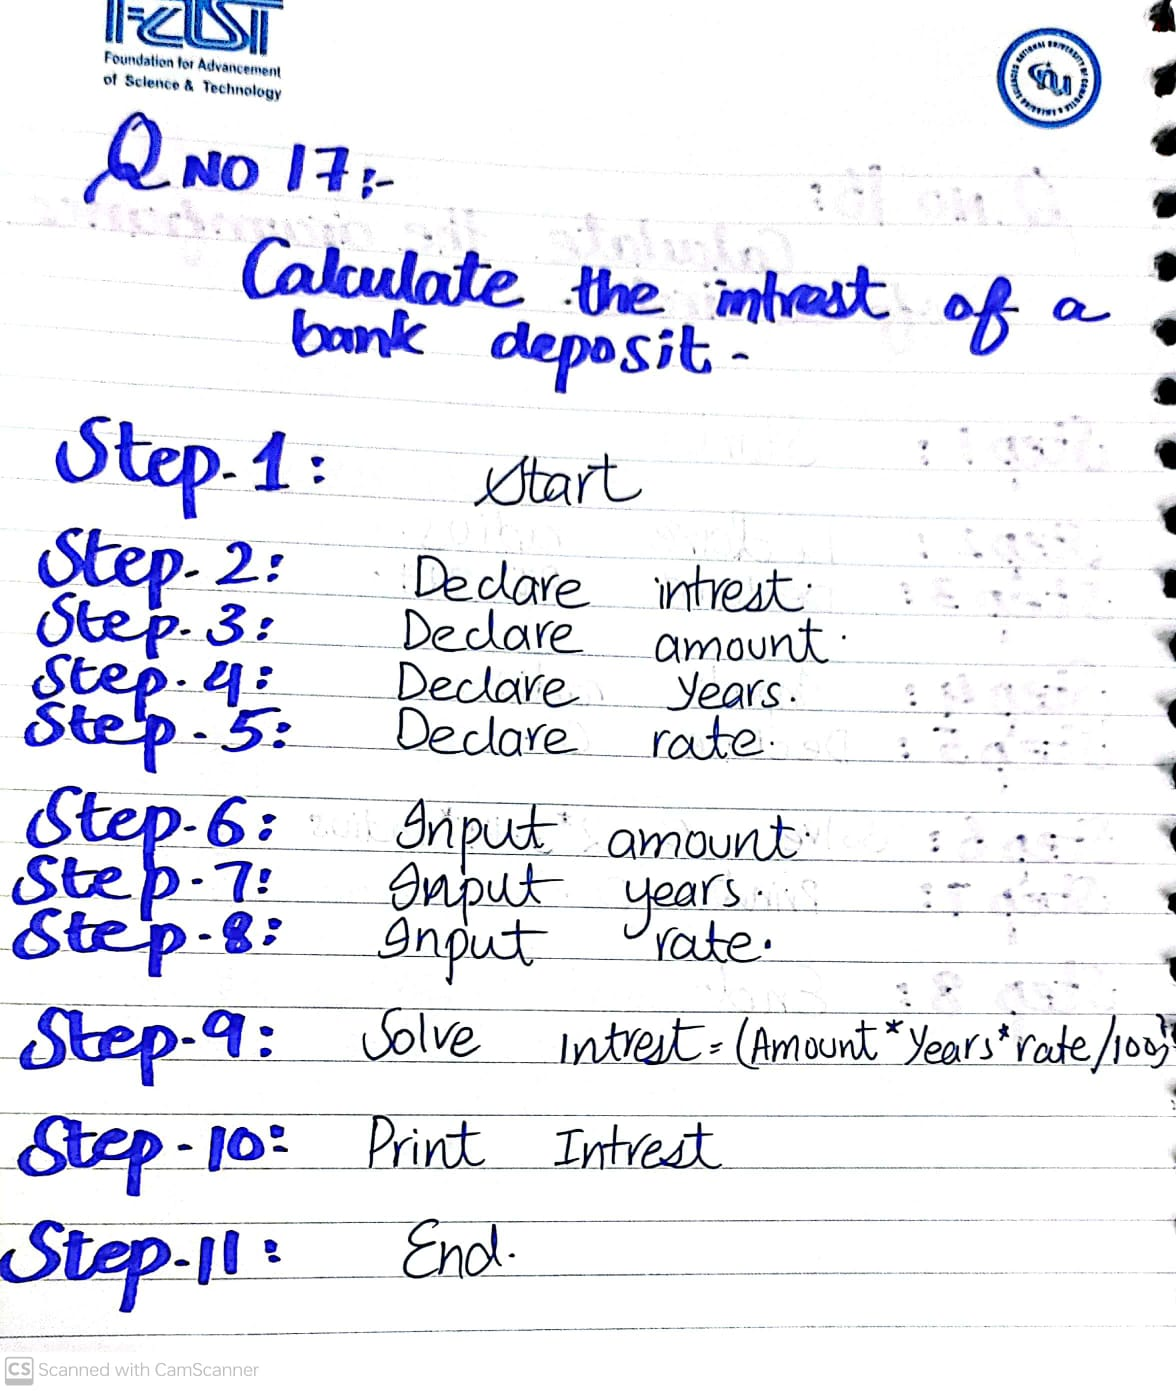 FAST
Foundation for Advancement
of Science & Technology
Q NO 17:-
Calculate the intrest of a
bank deposit.
Step-1: Start
Step-2: Declare intrest.
Step-3: Declare amount.
Step-4: Declare Years.
Step-5: Declare rate.
Step-6: Input amount.
Step-7: Input years.
Step-8: Input rate.
Step-9: Solve Intrest = (Amount * Years * rate/100)
Step-10: Print Intrest
Step-11: End.
CS Scanned with CamScanner